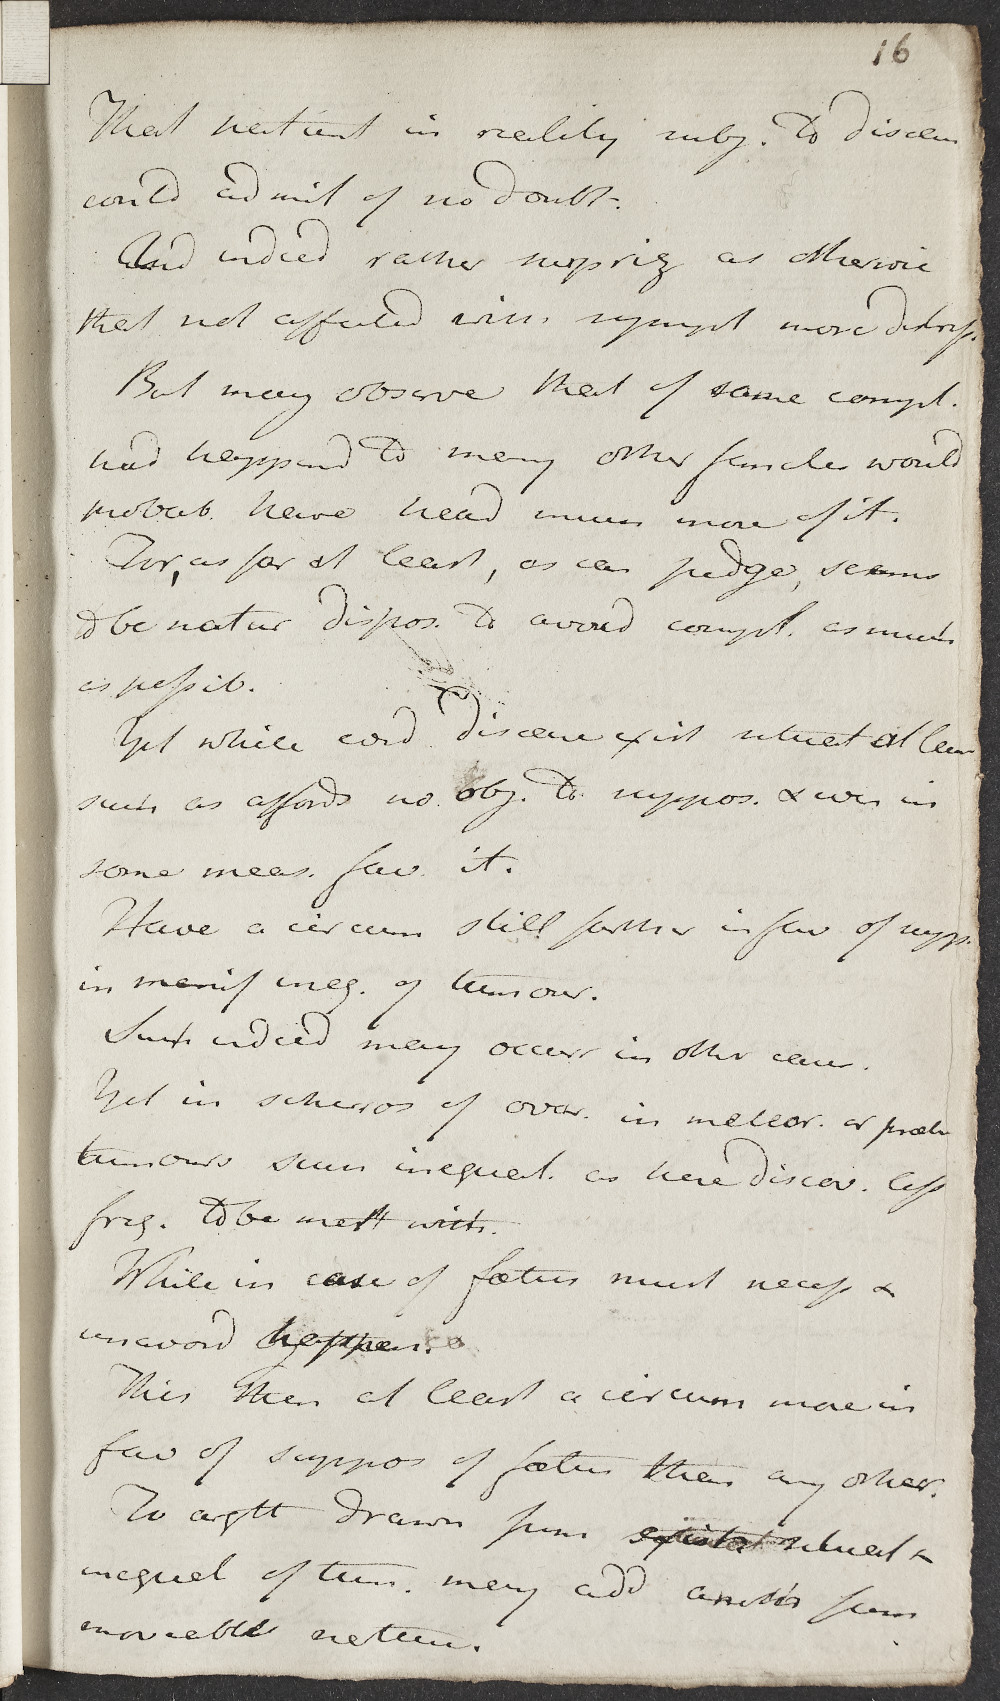 16
That patient in reality subj. to disease
could admit of no doubt.
And indeed rather surpriz as otherwise
that not affected with sympt more distress.
But may observe that if same compl.
had happend to many other females would
probab. have head much more of it.
For, as far at least, as can judge, seems
to be natur dispos. to avoid compl. as much
as possib.
Yet while did disease exist situat at least
such as affords no obj. to suppos. & even in
some meas. fav. it.
Have a circum still farther in fav of supp.
in manif ineq. of tumour.
Such indeed may occur in other cases.
Yet in schirros of ovar. in meteor. or
tumours such inequal. as here discov. less
freq. to be mett with.
While in case of fœtus must necess &
unavoid happen.
This then at least a circum more in
fav of suppos of fœtus than any other.
To argtt drawn from situat &
inequal of tum. may add anoth from
moveable nature.